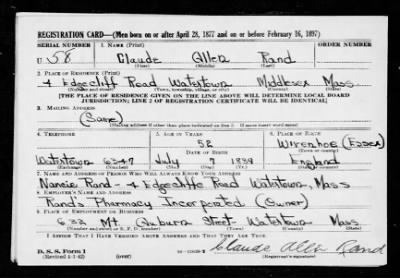 REGISTRATION CARD—(Men born on or after April 28, 1877 and on or before February 16, 1897)
SERIAL NUMBER 1. NAME (Print) ORDER NUMBER
U 58 Claude Allen Rand
(First) (Middle) (Last)
2. PLACE OF RESIDENCE (Print)
4 Edgecliff Road Watertown Middlesex Mass
(Number and street) (Town, township, village, or city) (County) (State)
[THE PLACE OF RESIDENCE GIVEN ON THE LINE ABOVE WILL DETERMINE LOCAL BOARD
JURISDICTION; LINE 2 OF REGISTRATION CERTIFICATE WILL BE IDENTICAL]
3. MAILING ADDRESS
(Same)
[Mailing address if other than place indicated on line 2. If same insert word same]
4. TELEPHONE 5. AGE IN YEARS 6. PLACE OF BIRTH
52 Wivenhoe (Essex)
DATE OF BIRTH (Town or county)
Watertown 6247 July 7 1889 England
(Exchange) (Number) (Mo.) (Day) (Yr.) (State or country)
7. NAME AND ADDRESS OF PERSON WHO WILL ALWAYS KNOW YOUR ADDRESS
Nancie Rand - 4 Edgecliffe Road Watertown Mass
8. EMPLOYER'S NAME AND ADDRESS
Rand's Pharmacy Incorporated (Owner)
9. PLACE OF EMPLOYMENT OR BUSINESS
632 Mt Auburn Street Watertown Mass
(Number and street or R. F. D. number) (Town) (County) (State)
I AFFIRM THAT I HAVE VERIFIED ABOVE ANSWERS AND THAT THEY ARE TRUE.
D. S. S. Form 1
(Revised 4-1-42) (over) Claude Allen Rand